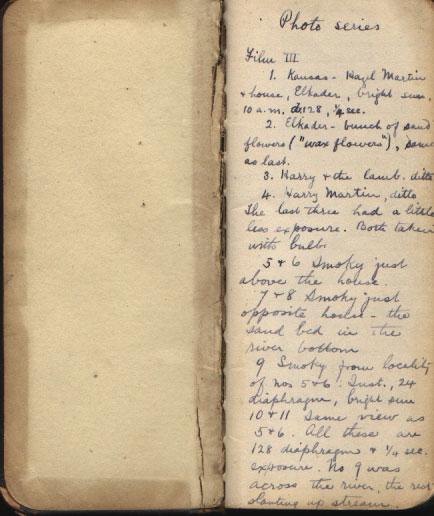 Photo series
Film III
1. Kansas - Hazel Martin
+ house, Elkader, bright sun,
10 a.m. d128, 1/4 sec.
2. Elkader - bunch of sand
flowers ("wax flowers"), same
as last.
3. Harry + the lamb. ditto
4. Harry Martin, ditto
The last three had a little
less exposure. Both taken
with bulb.
5 + 6 Smoky just
above the house.
7 + 8 Smoky just
opposite house - the
sand bed in the
river bottom
9 Smoky from locality
of nos 5 + 6. Inst., 24
diaphragm, bright sun
10 + 11 same view as
5 + 6. All these are
128 diaphragm + 1/4 sec.
exposure. No 9 was
across the river, the rest
slanting up stream.